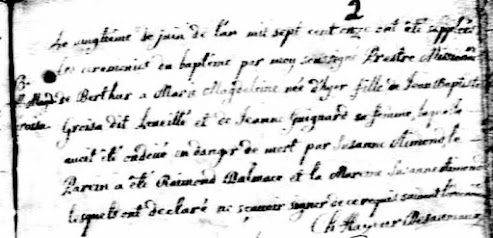 2
Le vingtième de juin de l'an mil sept cent onze ont été supplées
les ceremonies du baptême par moy soussigné Prestre Missionn
de Berthier a Marie Magdeleine née d'hyer fille de Jean Baptiste
Greisa dit Leveillé et de Jeanne Guignard sa femme, laquelle
avoit été ondoié en danger de mort par Susanne Aimond, le
Parein a été Raimond et la Mareine Susanne Aimond
lesquels ont declaré ne sçavoir signer de ce requis suivant